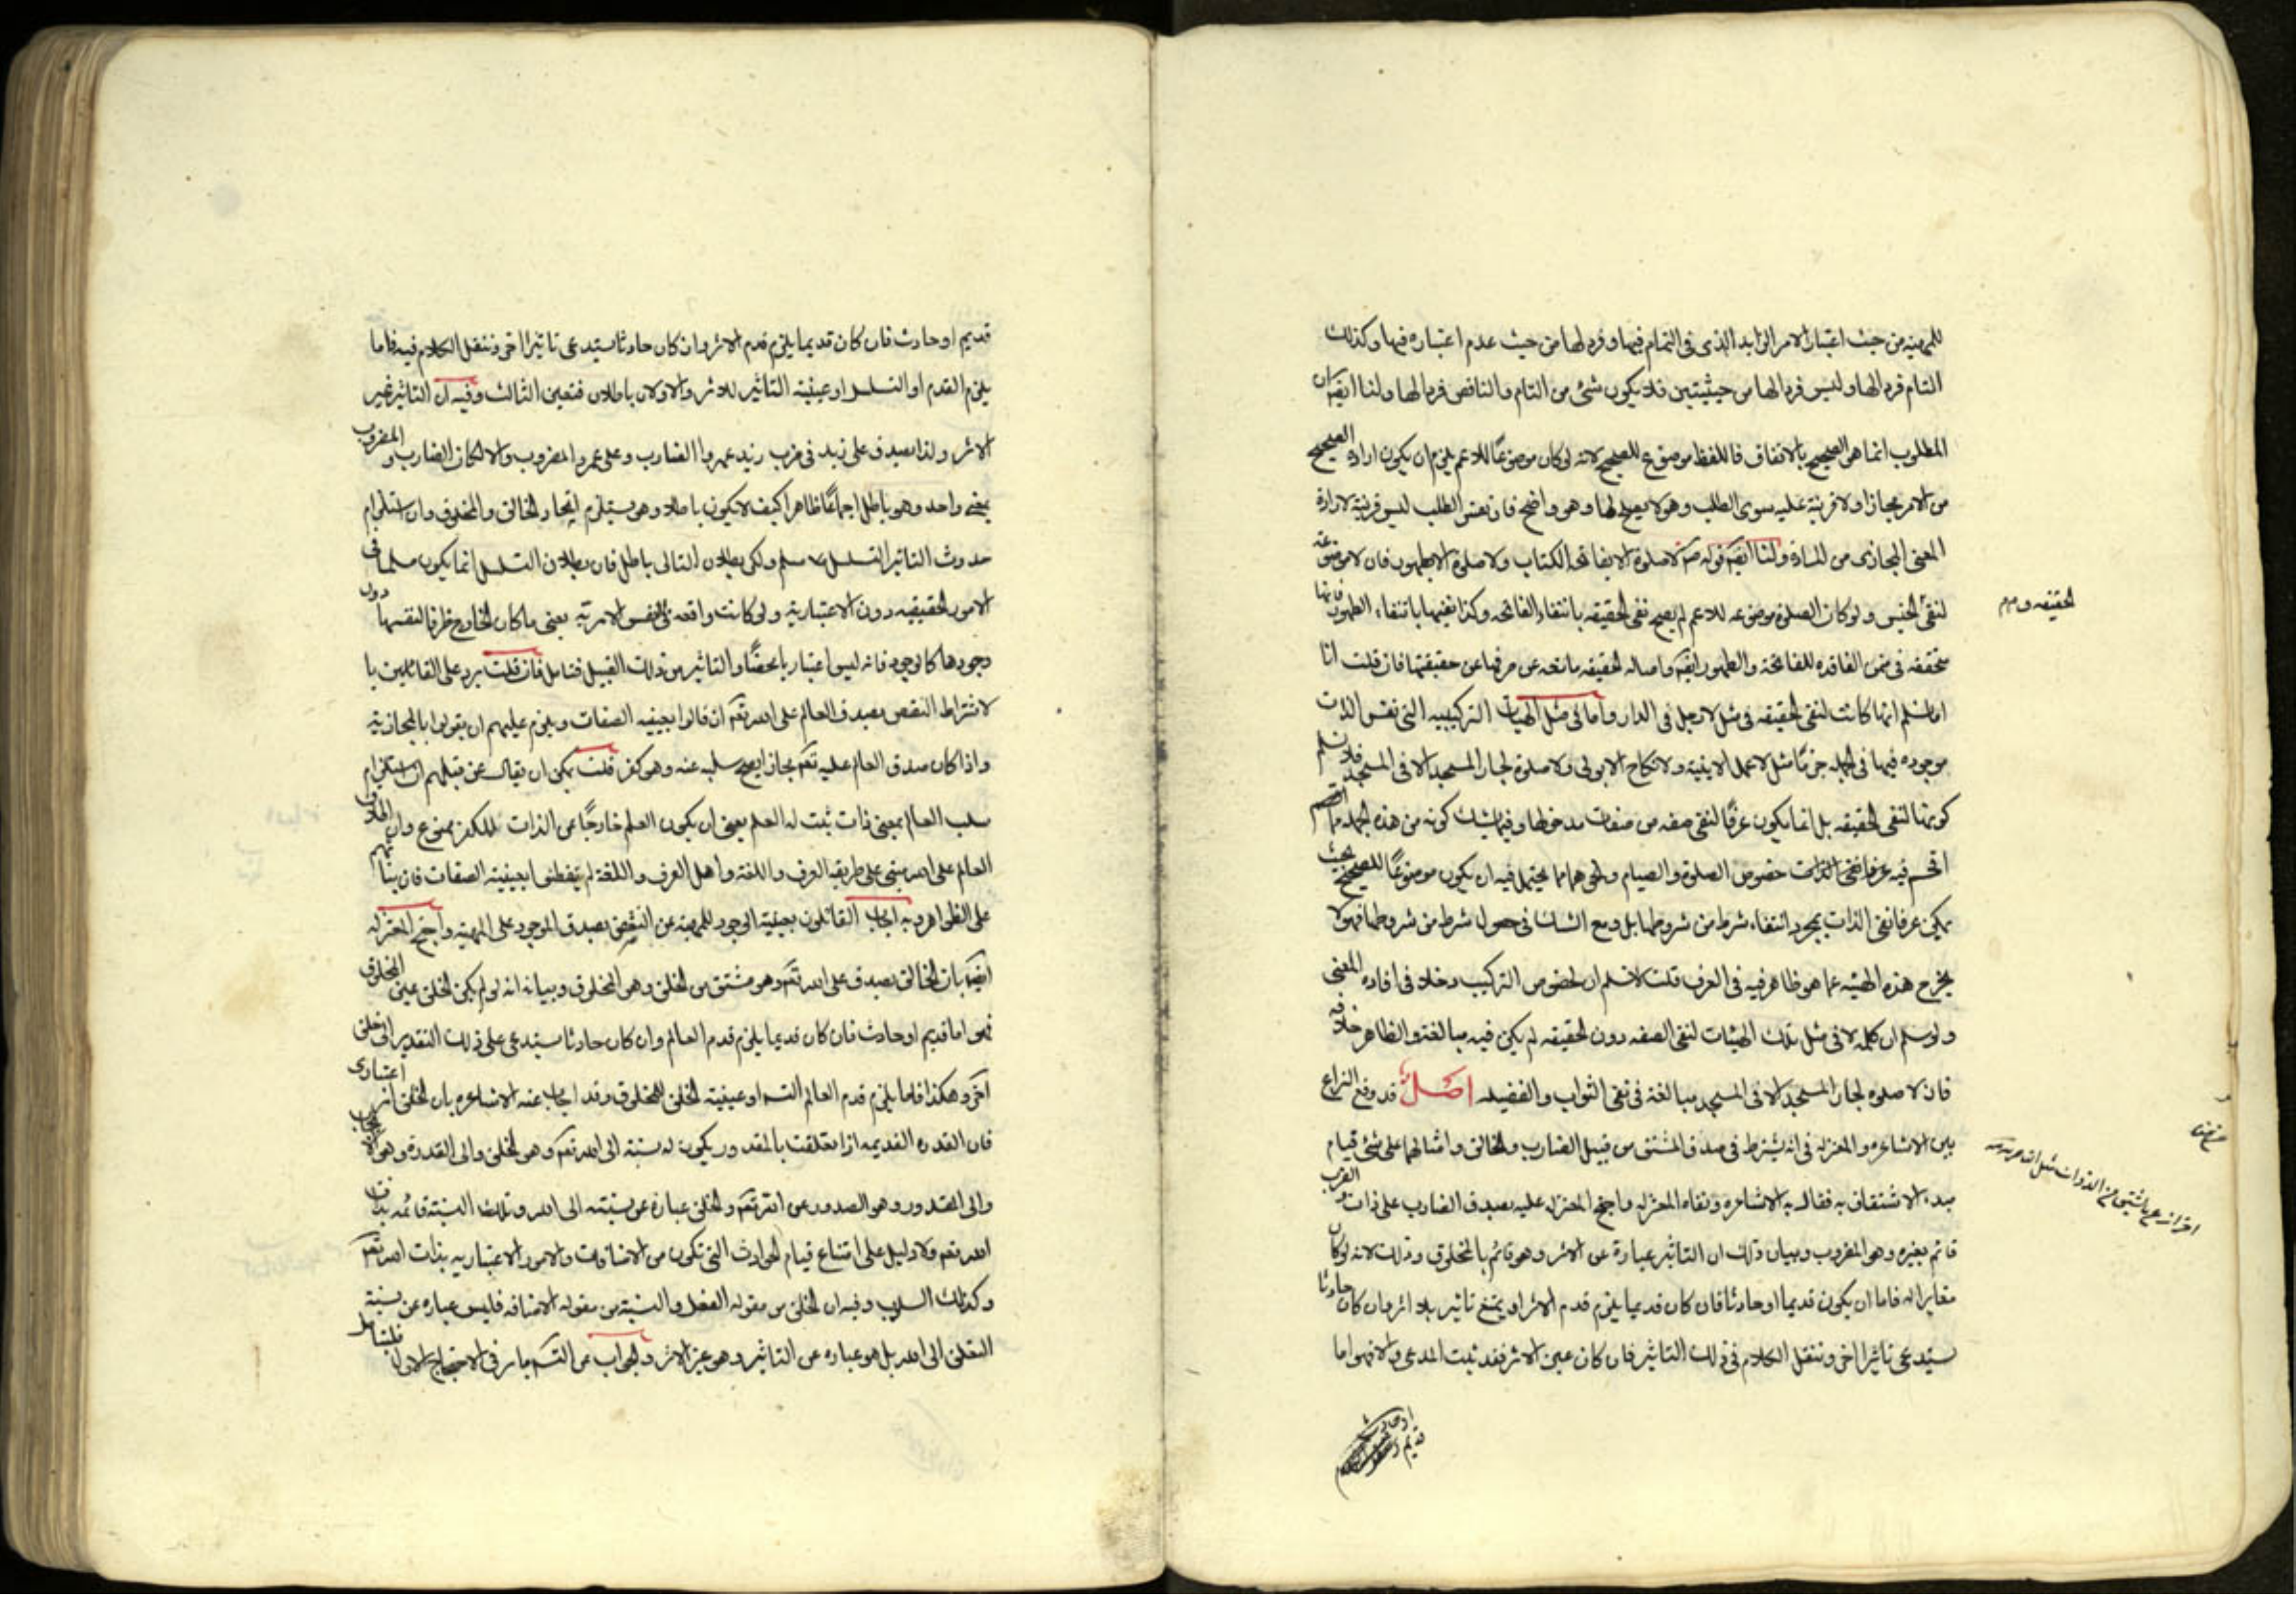 للمهيه من حيث اعتبار الامر الزايد الذى فى التمام فيها وفرد لها من حيث عدم اعتباره فيها وكذلك
التام فرد لها وليس فرد لها من حيثيتين فلا يكون شئ من التام والناقص فردا لها ولنا ايضا ان
المطلوب انما هو الصحيح بالاتفاق فاللفظ موضوع للصحيح لانه لو كان موضوعا للاعم يلزم ان يكون ارادة الصحيح
من الامر مجازا ولا قرينة عليه سوى الطلب وهو لا يصلح لها وهو واضح فان نفس الطلب ليس قرينة لارادة
المعنى المجازى من المادة ولنا ايضا قوله صم لا صلوة الا بفاتحة الكتاب ولا صلوة الا بطهور فان لا موضوعة
لنفى الجنس ولو كان الصلوة موضوعه للاعم لم يصح نفى الحقيقه بانتفاء الفاتحه وكذا نفيها بانتفاء الطهور فانها
متحققه فى ضمن الفاقده للفاتحة والطهور ايضا واصاله الحقيقه مانعه عن صرفها عن حقيقتها فان قلت انا
انما نسلم انها كانت لنفى الحقيقه فى مثل لا رجل فى الدار واما فى مثل الهيات التركيبيه التى نفس الذات
موجوده فيها فى الجمله جزما مثل لا عمل الا بنية ولا نكاح الا بولى ولا صلوة لجار المسجد الا فى المسجد فلا نسلم
كونها لنفى الحقيقه بل انما يكون عرفا لنفى صفه من صفات مدخولها وفيما يشك كونه من هذه الجمله مما
فيه عرفا نفى الذات خصوص الصلوة والصيام ونحوهما مما يحتمل فيه ان يكون موضوعا للصحيح بحيث
يمكن عرفا نفى الذات بمجرد انتفاء شرط من شروطها بل ومع الشك فى حصول شرط من شروطها فهو لا
يخرج هذه الهيئه عما هو ظاهر فيه فى العرف قلت لا نسلم ان لخصوص التركيب دخلا فى افاده المعنى
ولو سلم ان كلمه لا فى مثل تلك الهيئات لنفى الصفه دون الحقيقه لم يكن فيه مبالغة والظاهر خلافه
فان لا صلوه لجار المسجد الا فى المسجد مبالغة فى نفى الثواب والفضيله اصل قد وقع النزاع
بين الاشاعره والمعتزله فى انه يشترط فى صدق المشتق من قبيل الضارب والخالق وامثالهما على شئ قيام
مبدء الاشتقاق به فقال به الاشاعره ونفاه المعتزله واحتج المعتزله عليه بصدق الضارب على ذات والضرب
قائم بغيره وهو المضروب وبيان ذلك ان التاثير عبارة عن الاثر وهو قائم بالمخلوق وذلك لانه لو كان
مغايرا له فاما ان يكون قديما او حادثا فان كان قديما يلزم قدم الاثر او يمتنع تاثير بلا اثر وان كان حادثا
يستدعى تاثيرا اخر وننقل الكلام فى ذلك التاثير فان كان عين الاثر فقد ثبت المدعى والا فهو اما
الحقيقه وعدم
قديم او حادث فان كان قديما يلزم قدم الاثر وان كان حادثا يستدعى تاثيرا اخر وننقل الكلام فيه فاما
يلزم القدم او التسلسل او عينية التاثير للاثر والاولان باطلان فتعين الثالث وفيه ان التاثير غير
الاثر ولذا يصدق على زيد فى ضرب زيد عمروا الضارب وعلى عمرو المضروب والا لكان الضارب والمضروب
بمعنى واحد وهو باطل اجماعا ظاهرا كيف لا يكون باطلا وهو يستلزم اتحاد الخالق والمخلوق وان استلزام
حدوث التاثير التسلسل مسلم ولكن بطلان التالى باطل فان بطلان التسلسل انما يكون مسلما فى
الامور الحقيقيه دون الاعتبارية ولو كانت واقعه فى نفس الامريه يعنى ما كان الخارج ظرفا لنفسها دون
وجودها كالوجود فانه ليس اعتباريا محضا والتاثير من ذلك القبيل فتامل فان قلت يرد على القائلين با
لاشتراط النقض بصدق العالم على الله تعم ان قالوا بعينيه الصفات ويلزم عليهم ان يقولوا بالمجازية
واذا كان صدق العالم عليه تعم مجازا يصح سلبه عنه وهو كفر قلت يمكن ان يقال عن قبلهم ان استلزام
سلب العالم بمعنى ذات ثبت له العلم يعنى ان يكون العلم خارجا عن الذات للكفر ممنوع وان اطلاق
العالم على الله مبنى على طريقه العرف واللغة واهل العرف واللغة لم يتفطنوا بعينيته الصفات فان بنائهم
على الظواهر وبه اجاب القائلون بعينية الوجود للمهية عن النقض بصدق الموجود على المهية واحتج المعتزله
ايضا بان الخالق يصدق على الله تعم وهو مشتق من الخلق وهو المخلوق وبيانه انه لو لم يكن الخلق عين المخلوق
فهو اما قديم او حادث فان كان قديما يلزم قدم العالم وان كان حادثا يستدعى على ذلك التقدير الى خلق
اخر وهكذا فاما يلزم قدم العالم او التسـ او عينية الخلق للمخلوق وقد اجاب عنه الاشاعره بان الخلق امر اعتبارى
فان القدره القديمه اذا تعلقت بالمقدور يكون له نسبته الى الله تعم وهو الخلق والى القدرة وهو الايجاب
والى المقدور وهو الصدور عن الله تعم والخلق عبارة عن نسبته الى الله وتلك النسبة قائمه بذات
الله تعم ولا دليل على امتناع قيام الحوادث التى تكون من الاضافات والامور الاعتباريه بذات الله تعم
وكذلك السلوب وفيه ان الخلق من مقوله الفعل والنسبة من مقوله الاضافه فليس عباره عن نسبة
الخلق الى الله بل هو عباره عن التاثير وهو غير الاثر والجواب عن التسـ ما مر فى الاحتجاج الاول فليتامل